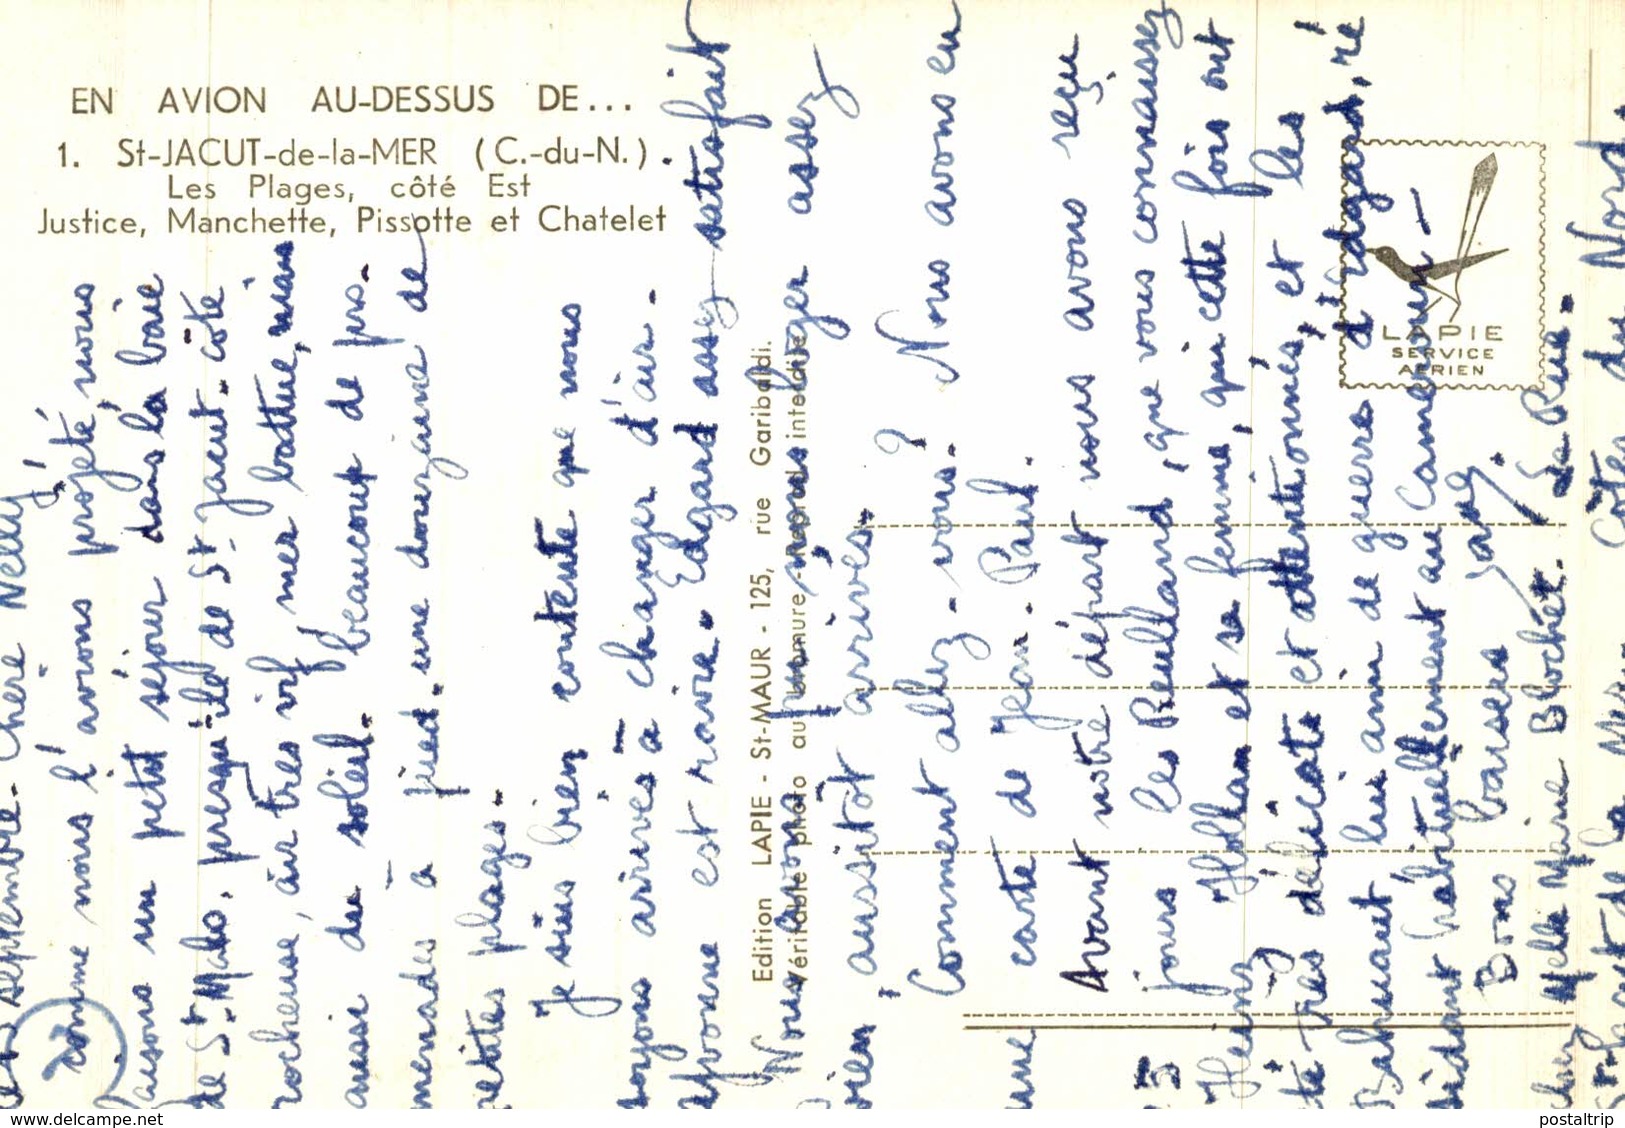 EN AVION AU-DESSUS DE...
1. St-JACUT-de-la-MER (C.-du-N.).
Les Plages, côté Est
Justice, Manchette, Pissotte et Chatelet
Edition LAPIE - St-MAUR - 125, rue Garibaldi.
Véritable photo au bromure - Reprod. interdite
LAPIE
SERVICE
AERIEN
septembre. Chère Nelly
comme nous l'avions projeté, nous
faisons un petit séjour dans la baie
de St. Malo, presqu'île de St Jacut. côte
rocheuse, air très vif, mer battue, mais
aussi du soleil. beaucoup de pro-
menades à pied. une douzaine de
petites plages.
Je suis bien contente que nous
soyons arrivés à changer d'air.
Alphonse est ravi. Edgard assez satisfait
Nous assez
bien, aussitôt arrivés.
Comment allez-vous? Nous avons eu
une carte de Jean-Paul.
Avant notre départ nous avons reçu
5 jours les Reulland, que vous connaissez
Heinz Holham et sa femme, qui cette fois ont
été très délicats et attentionnés, et les
Bahuaut, lui ami de guerre d'Edgard, ré
sidant habituellement au Cameroun -
Bons baisers
chez Melle Marie Blochet. La Rue.
St Jacut de la Mer. Côtes du Nord.
delcampe.net
postaltrip